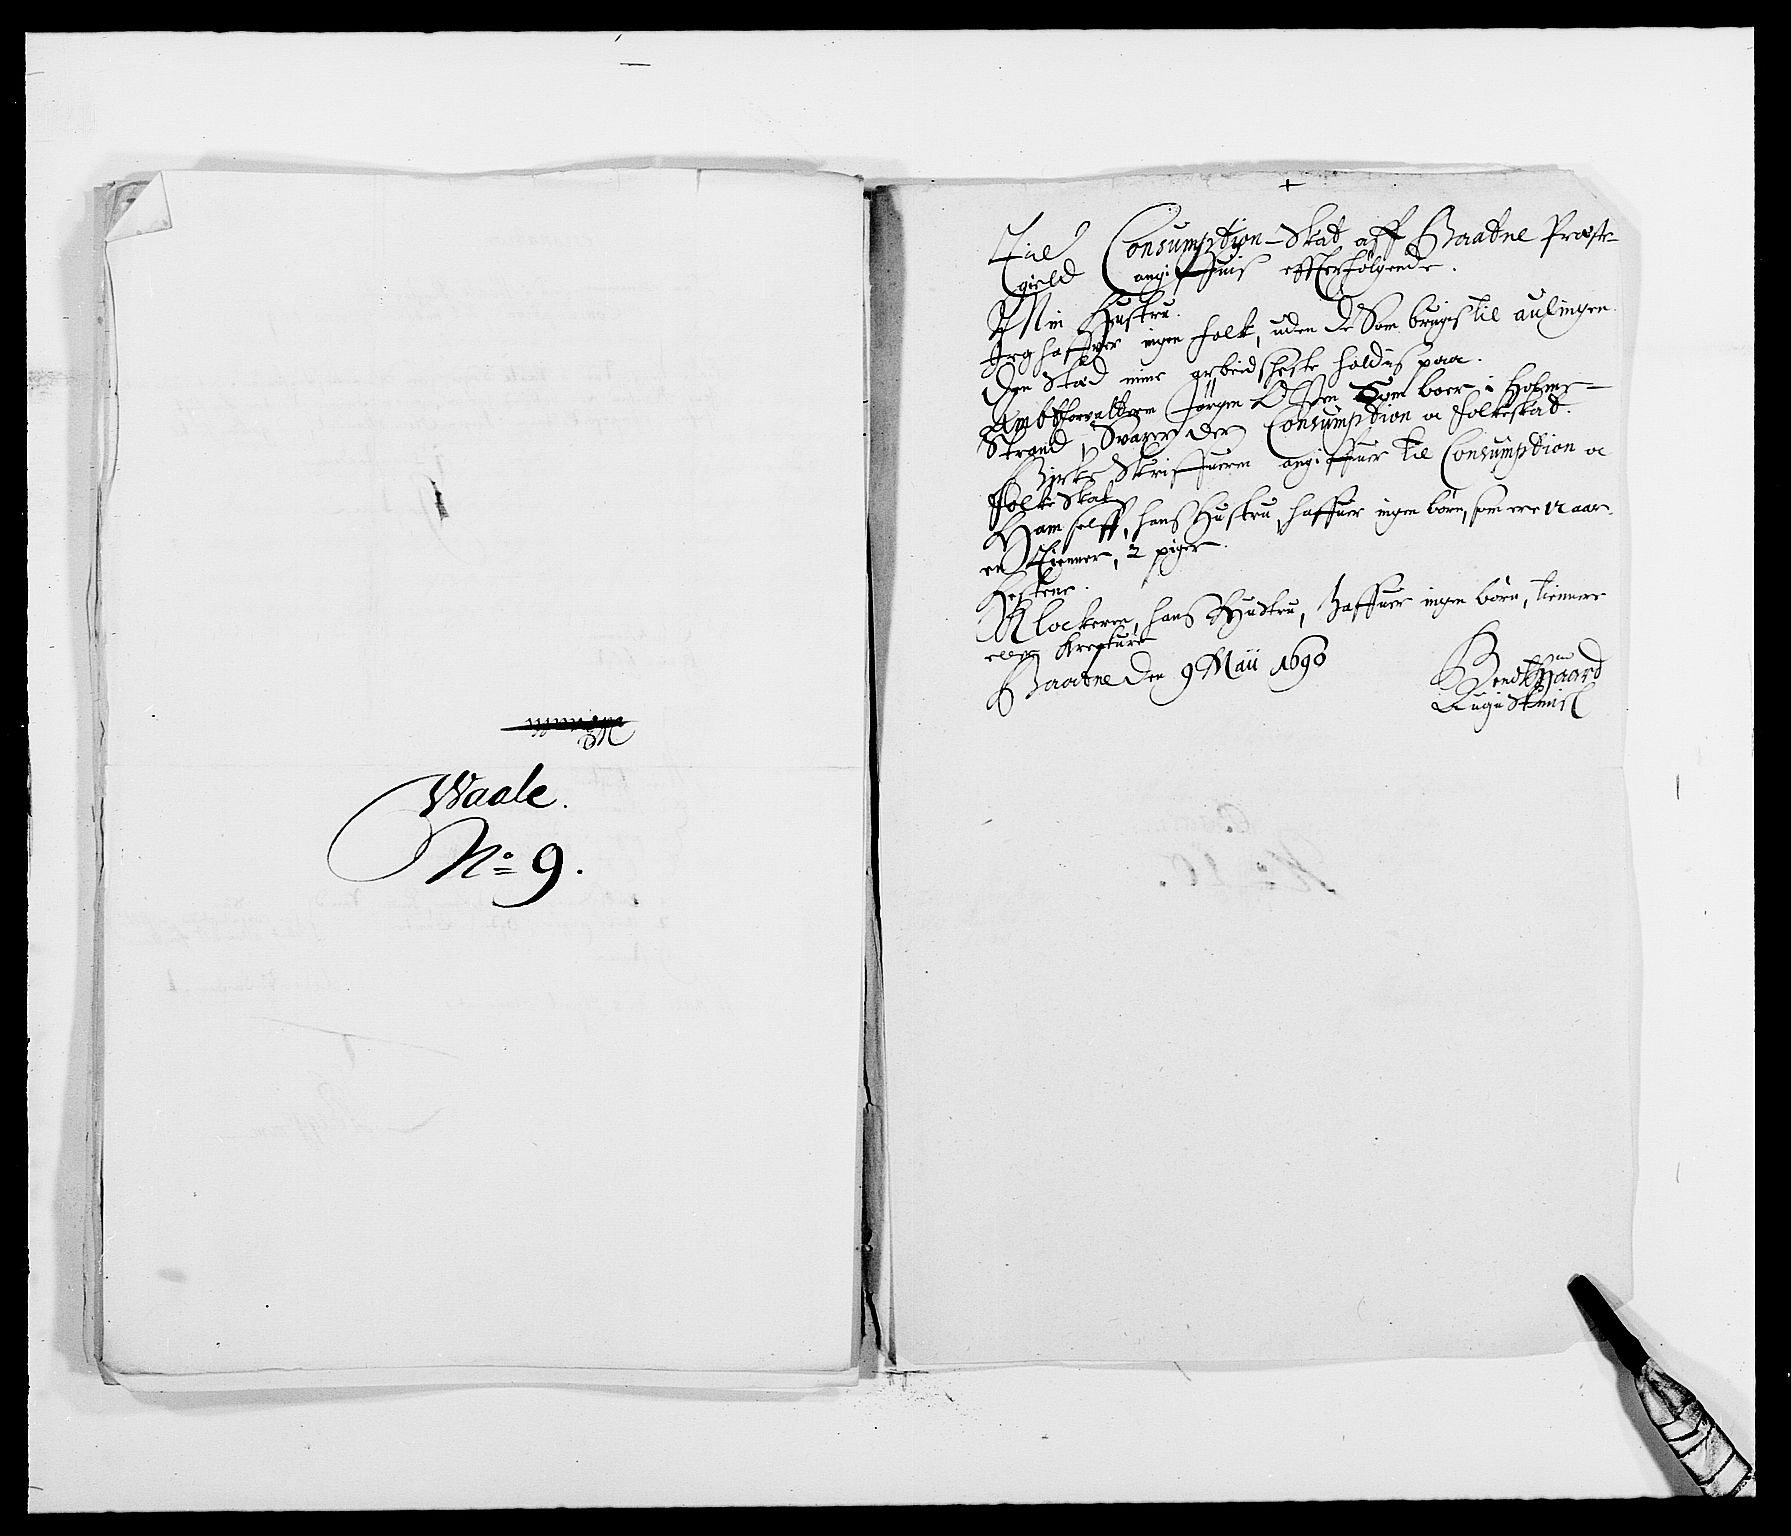 Waale.
No 9.
+
Til Consumption-Skat aff Baadne Præste-
gield angiffuis effterfølgende.
Min Hustru.
Jeg haffver ingen folk, uden de som brugis til aulingen.
Den Stæd mine arbeidsheste holdis paa.
Ambtforvalteren Jørgen Olsen Som boer i Holme-
Strand, Svarer der Consumption oc folkeskat.
Birke Skriffueren angiffuer til Consumption oc
Folke Skat
Ham selff, hans Hustru, haffuer ingen børn, som ere 12 aar.
en Tienner, 2 piger.
Hestene.
Klockeren, hans Hustru, haffuer ingen børn, tiennere
eller Kreature
Baadne den 9 Maii 1690
Bendt
Augustinis